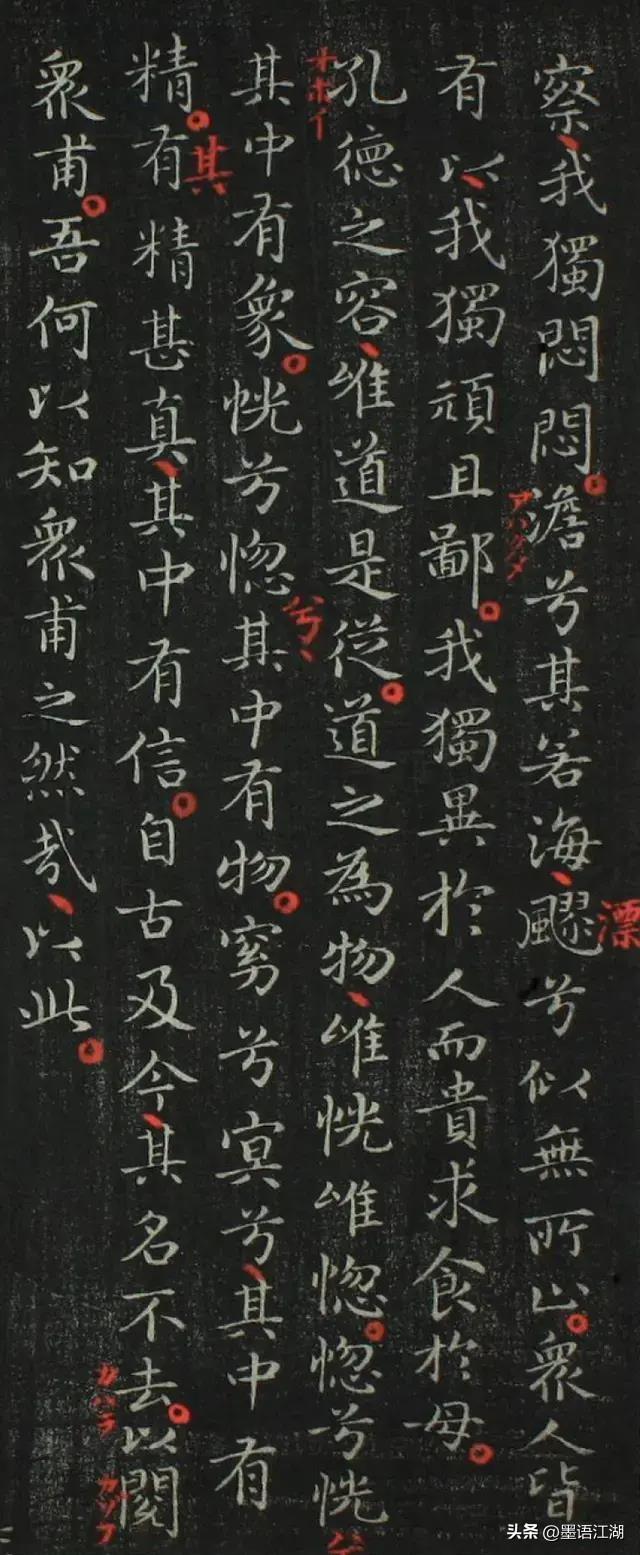 察我獨悶悶澹兮其若海飂兮似無所止衆人皆
漂
有以我獨頑且鄙我獨異於人而貴求食於母
孔德之容唯道是從道之為物唯恍唯惚惚兮恍
オホイ
其中有象恍兮惚其中有物窈兮冥兮其中有
兮
精有精甚真其中有信自古及今其名不去以閱
其
衆甫吾何以知衆甫之然哉以此
头条 @墨语江湖